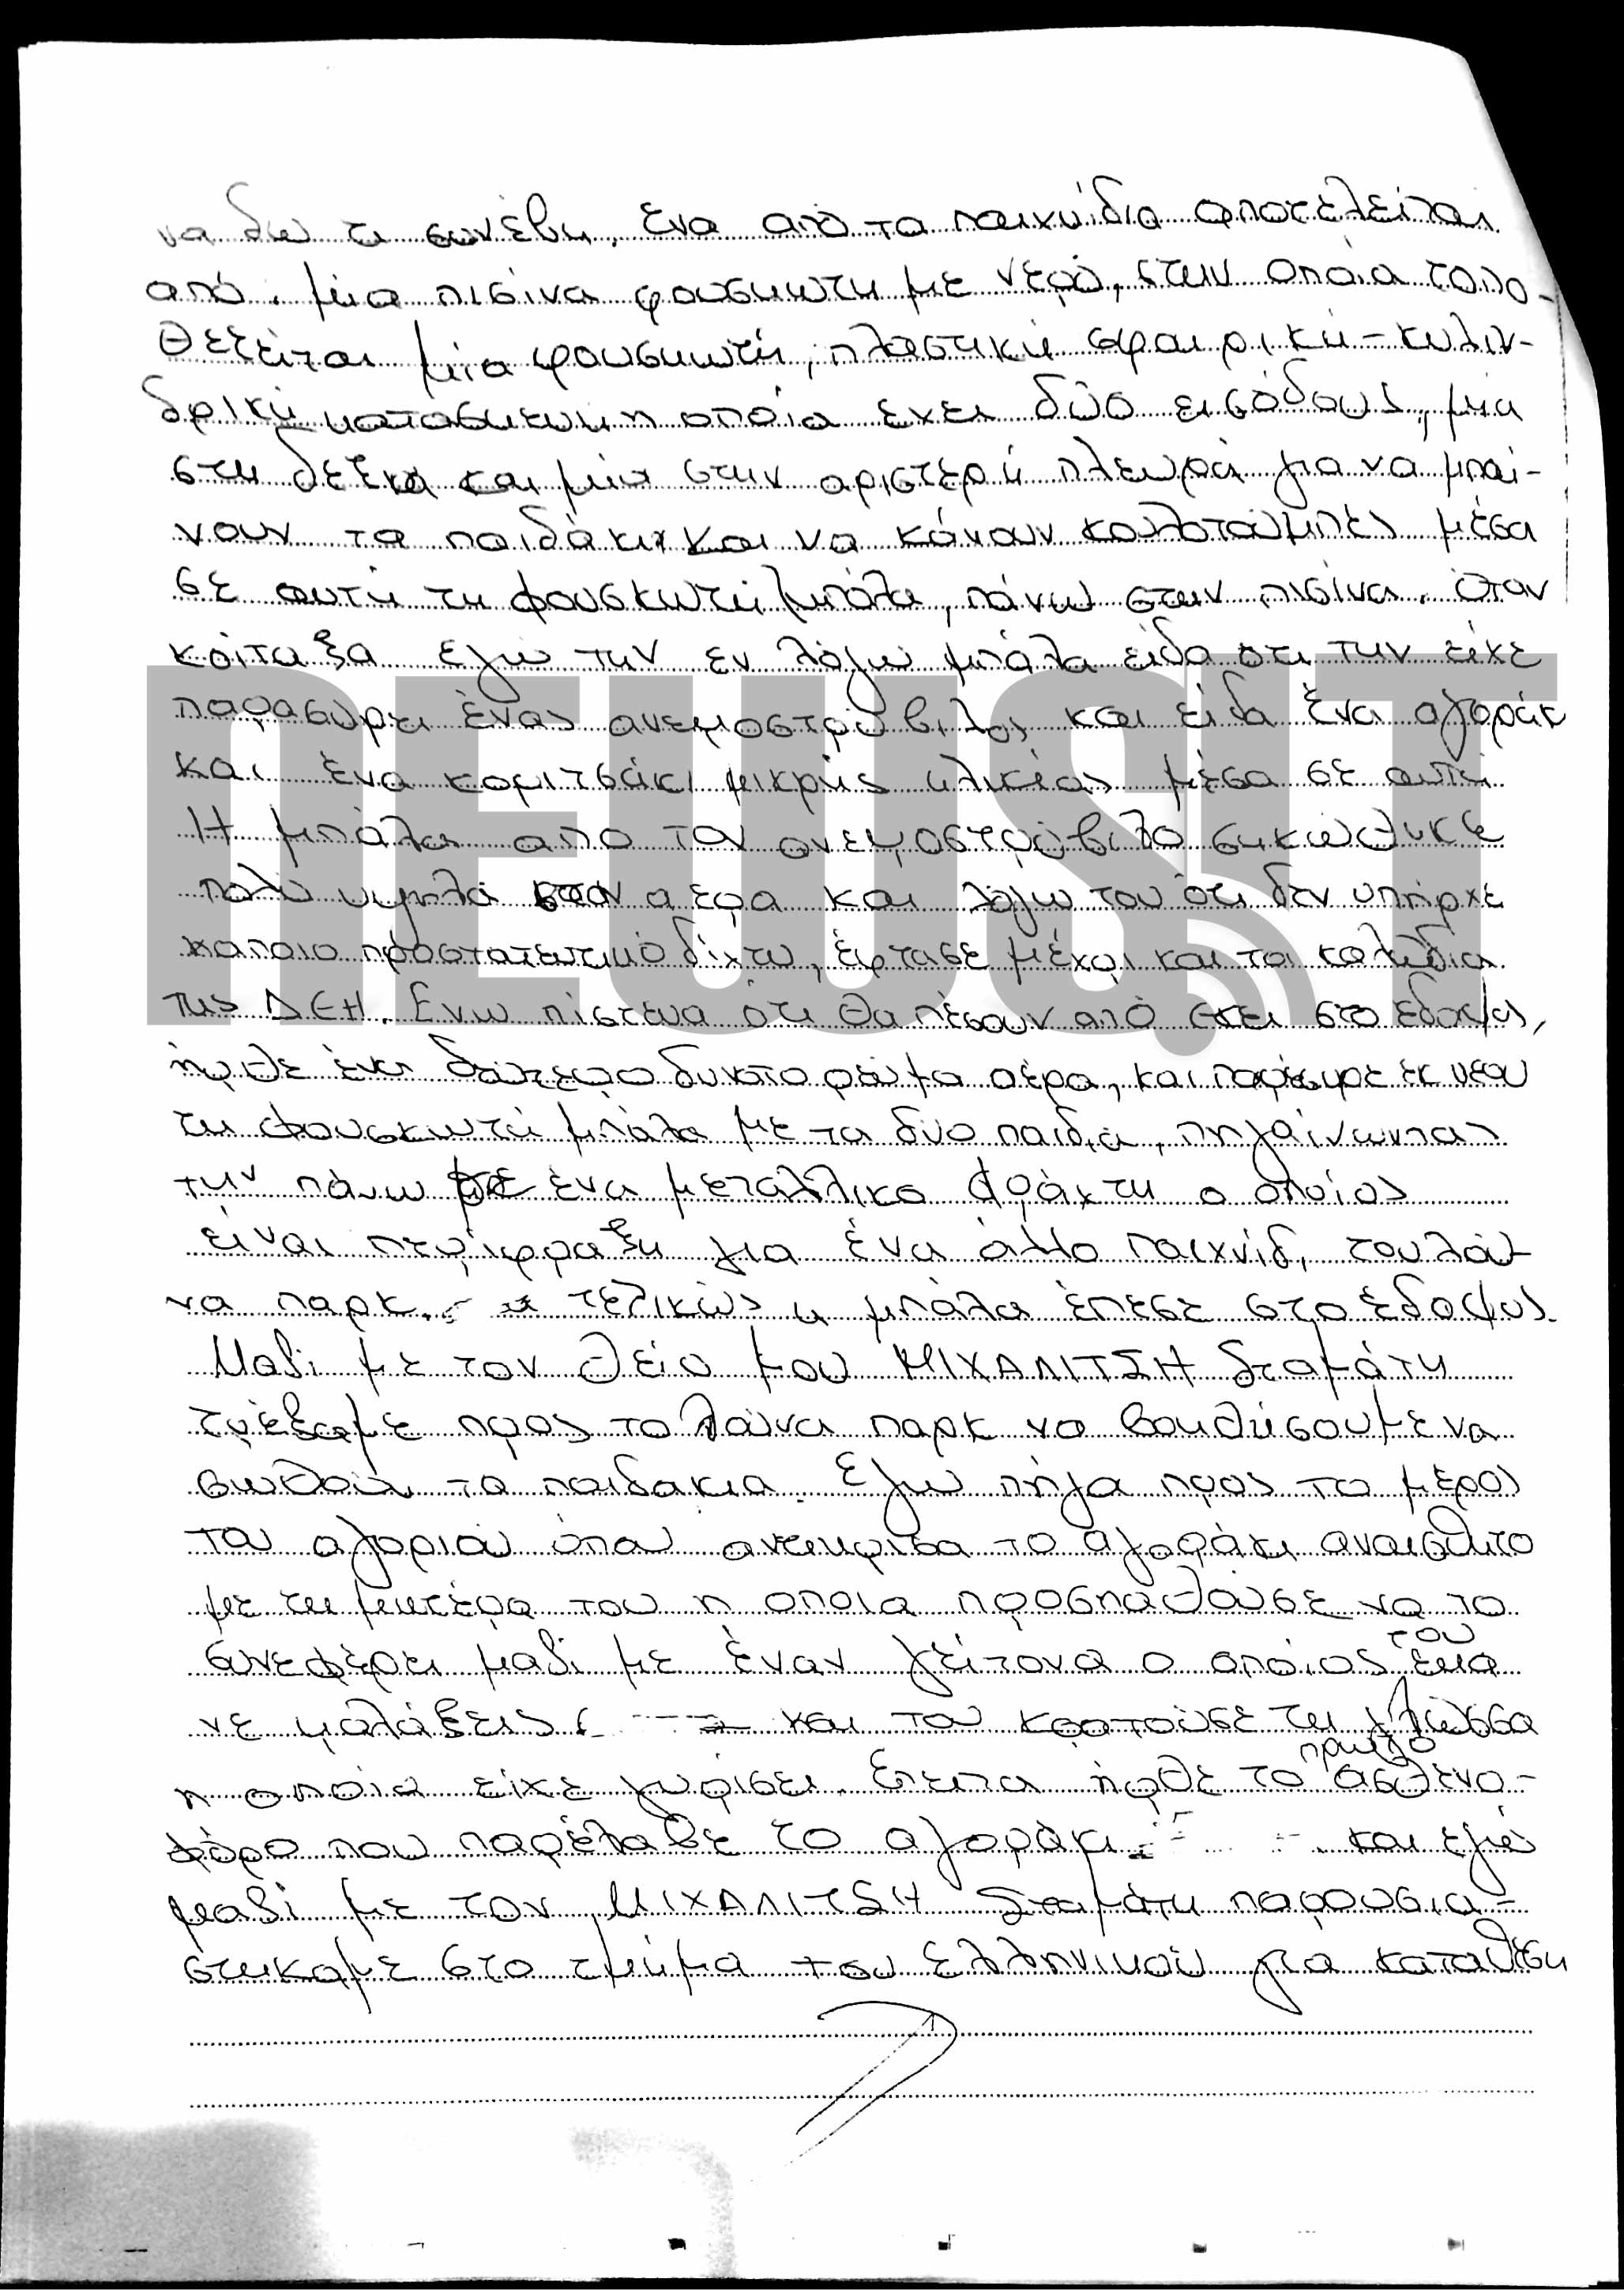 να δω τι συνέβη. Ένα από τα παιχνίδια αποτελείται
από μία πισίνα φουσκωτή με νερό, στην οποία τοπο-
θετείται μία φουσκωτή, πλαστική σφαιρική - κυλιν-
δρική κατασκευή η οποία έχει δύο εισόδους, μία
στη δεξιά και μία στην αριστερή πλευρά για να μπαί-
νουν τα παιδάκια και να κάνουν κουλοτούμπες μέσα
σε αυτή τη φουσκωτή μπάλα, πάνω στην πισίνα. Όταν
κοίταξα εγώ την εν λόγω μπάλα είδα ότι την είχε
παρασύρει ένας ανεμοστρόβιλος και είδα ένα αγοράκι
και ένα κοριτσάκι μικρής ηλικίας μέσα σε αυτή.
Η μπάλα από τον ανεμοστρόβιλο σηκώθηκε
πολύ ψηλά στον αέρα και λόγω του ότι δεν υπήρχε
κάποιο προστατευτικό δίχτυ, έφτασε μέχρι και τα καλώδια
της ΔΕΗ. Ενώ πίστευα ότι θα πέσουν από εκεί στο έδαφος,
ήρθε ένα δεύτερο δυνατό ρεύμα αέρα, και παρέσυρε εκ νέου
τη φουσκωτή μπάλα με τα δύο παιδιά, πηγαίνωντας
την πάνω σε ένα μεταλλικό φράχτη ο οποίος
είναι περίφραξη για ένα άλλο παιχνίδι του λού-
να παρκ. τελικώς η μπάλα έπεσε στο έδαφος.
Μαζί με τον θείο μου ΜΙΧΑΛΙΤΣΗ Σταμάτη
τρέξαμε προς το λούνα παρκ να βοηθήσουμε να
σωθούν τα παιδάκια. Εγώ πήγα προς το μέρος
του αγοριού όπου αντίκρισα το αγοράκι αναίσθητο
με τη μητέρα του η οποία προσπαθούσε να το
συνεφέρει μαζί με έναν γείτονα ο οποίος του έκα
νε μαλάξεις και του κρατούσε τη γλώσσα
η οποία είχε γυρίσει. Έπειτα ήρθε το πρώτο ασθενο-
φόρο που παρέλαβε το αγοράκι και εγώ
μαζί με τον ΜΙΧΑΛΙΤΣΗ Σταμάτη παρουσια-
στήκαμε στο τμήμα του Ελληνικού για κατάθεση
NEWSIT